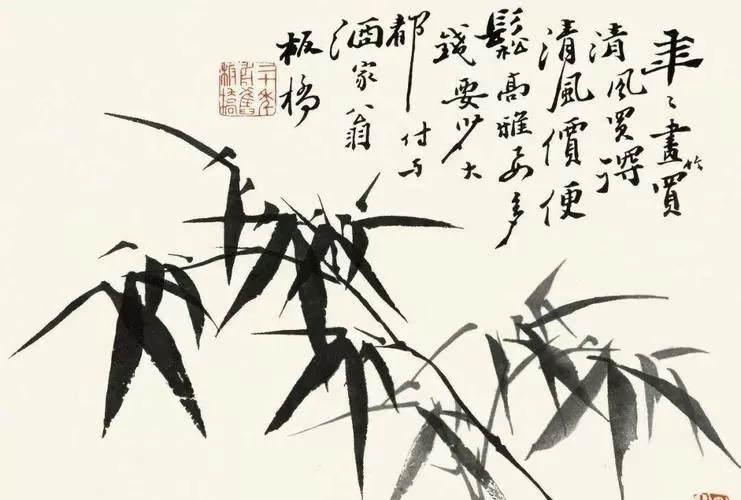 年〻畫竹買
清风買得
清風價便
鬆高雅要多
錢要少大
都付与
酒家翁
板橋
板橋